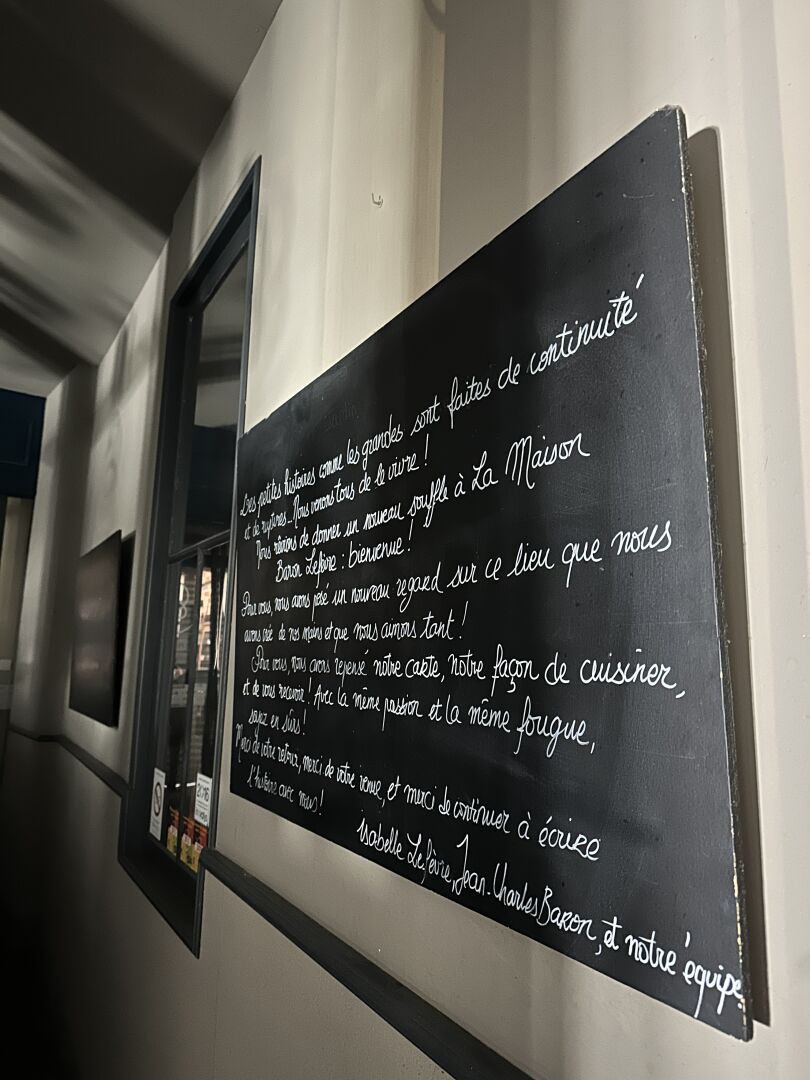 Les petites histoires comme les grandes sont faites de continuité
et de rythmes... Nous venons tous de le vivre !
Nous rêvions de donner un nouveau souffle à La Maison
Baron Lefèvre : bienvenue !
Pour vous, nous avons posé un nouveau regard sur ce lieu que nous
avons créé de nos mains et que nous aimons tant !
Pour vous, nous avons repensé notre carte, notre façon de cuisiner,
et de vous recevoir ! Avec la même passion et la même fougue,
soyez en sûrs !
Merci de votre retour, merci de votre venue, et merci de continuer à écrire
l'histoire avec nous !
Isabelle Lefèvre, Jean-Charles Baron, et notre équipe
2016